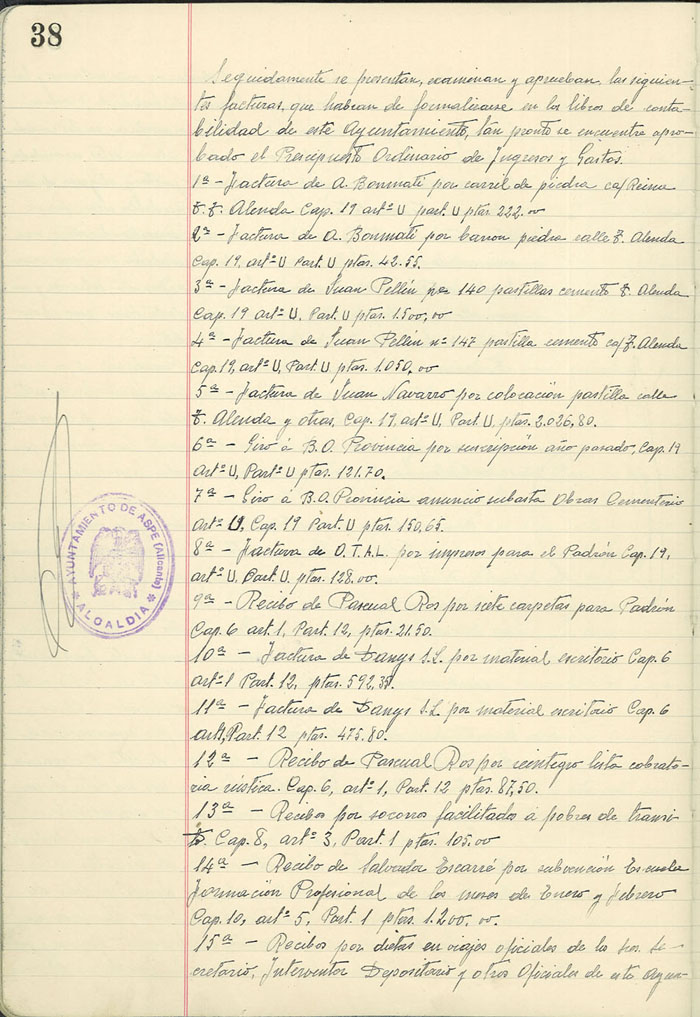 38
Seguidamente se presentan, examinan y aprueban, las siguien-
tes facturas, que habran de formalizarse en los libros de conta-
bilidad de este Ayuntamiento, tan pronto se encuentre apro-
bado el Presupuesto Ordinario de Ingresos y Gastos.
1ª - Factura de A. Bonmatí por carril de piedra c/ Reina
Alenda Cap. 19 artº U part. U ptas. 222.00
2ª - Factura de A. Bonmatí por barron piedra calle Alenda
Cap. 19, artº U Part. U ptas. 42.55.
3ª - Factura de Juan Pellín por 140 pastillas cemento Alenda
Cap. 19 artº U, Part. U ptas. 1.500,00
4ª - Factura de Juan Pellín nº 147 pastilla cemento c/ Alenda
Cap. 19, artº U, Part U ptas. 1.050,00
5ª - Factura de Juan Navarro por colocación pastilla calle
Alenda y otras, Cap. 19, artº U, Part U, ptas. 2.026,80.
6ª - Giro á B.O. Provincia por suscripción año pasado, Cap. 19
artº U, Partº U ptas. 121.70.
7ª - Giro á B.O. Provincia anuncio subasta Obras Cementerio
artº U, Cap. 19 Part U ptas. 150,65.
8ª - Factura de O.T.A.L. por impresos para el Padrón Cap. 19,
artº U. Part. U. ptas. 128.00.
9ª - Recibo de Pascual Ros por siete carpetas para Padrón
Cap. 6 art. 1, Part. 12, ptas. 21.50.
10ª - Factura de Danys S.L. por material escritorio Cap. 6
artº 1 Part. 12, ptas. 592,35.
11ª - Factura de Danys S.L. por material escritorio Cap. 6
art 1, Part. 12 ptas. 475.80.
12ª - Recibo de Pascual Ros por reintegro lista cobrato-
ria rústica. Cap. 6, artº 1, Part. 12 ptas. 87,50.
13ª - Recibos por socorros facilitados a pobres de transi-
to. Cap. 8, artº 3, Part. 1 ptas. 105.00
14ª - Recibo de Salvador Escarré por subvención Escuela
Formación Profesional de los meses de Enero y Febrero
Cap. 10, artº 5, Part. 1 ptas. 1.200,00.
15ª - Recibos por dietas en viajes oficiales de los Sres. Se-
cretario, Interventor Depositario y otros Oficiales de este Ayun-
AYUNTAMIENTO DE ASPE (Alicante)
* ALCALDIA *